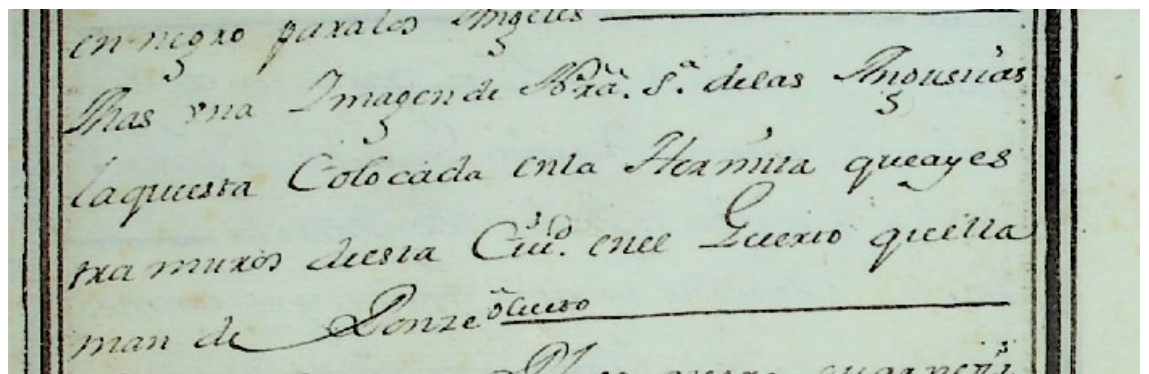 en negro para los Angeles
Mas vna Imagen de Nrâ. Sª. delas Angustias
laquesta Colocada enla Hermita queay es
tra muros deesta Ciud. enel Guerto quella
man de Ponze